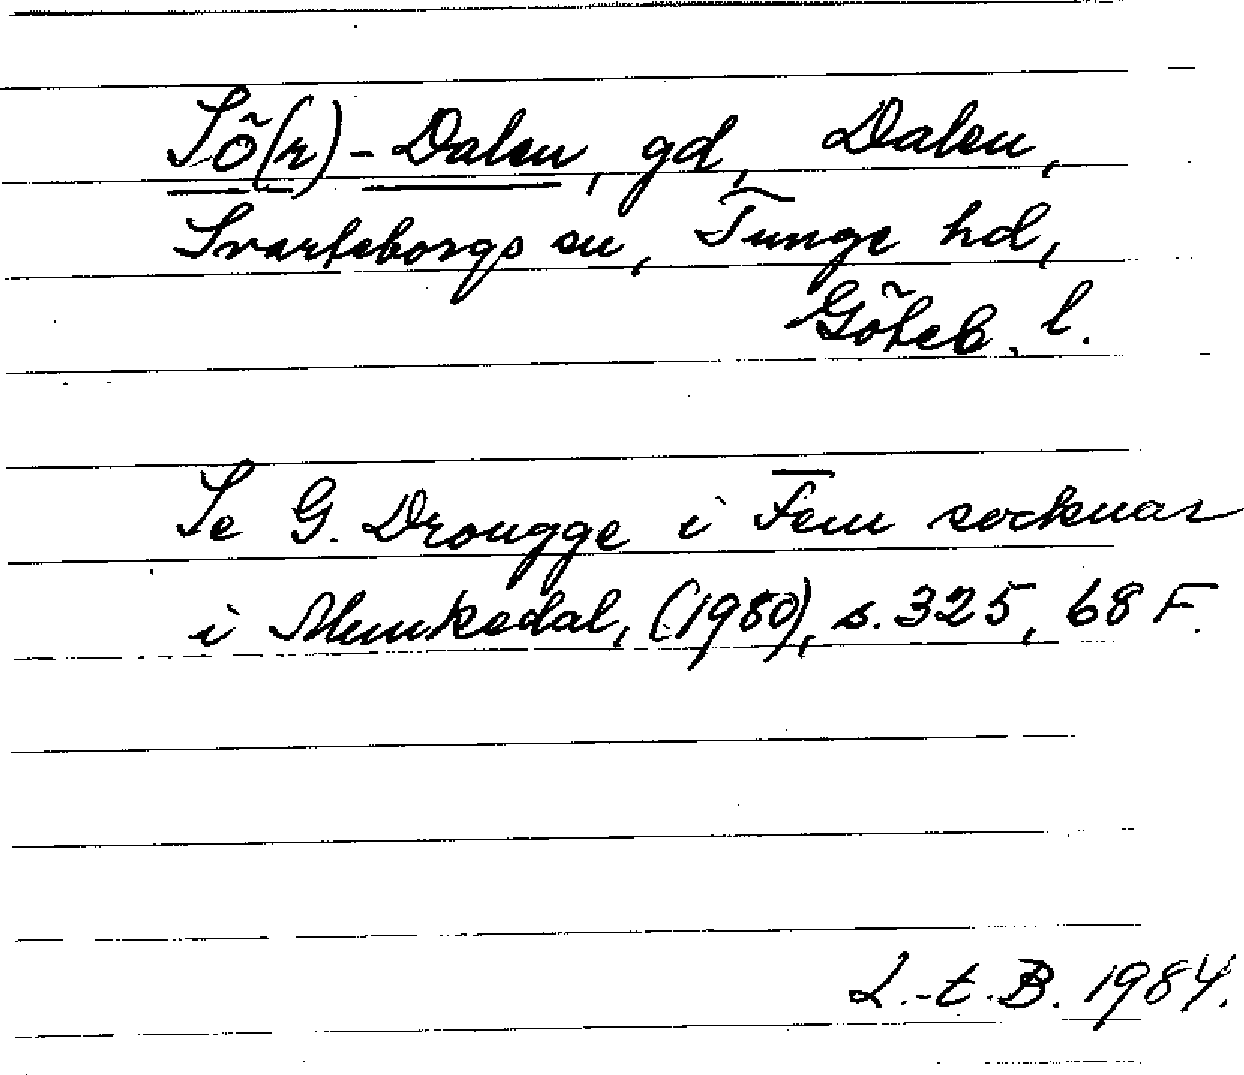 Sö(r)-Dalen, gd, Dalen,
Svarteborgs sn, Tunge hd,
Göteb. l.
Se G. Drougge i Fem socknar
i Munkedal, (1980), s. 325, 68 F.
L.-t.B. 1984.